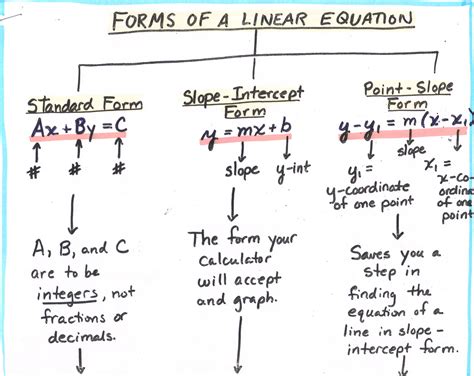 FORMS OF A LINEAR EQUATION
Standard Form
Ax + By = C
# # #
A, B, and C
are to be
integers, not
fractions or
decimals.
Slope-Intercept
Form
y = mx + b
slope y-int
The form your
calculator
will accept
and graph.
Point-Slope
Form
y - y₁ = m(x - x₁)
slope
y₁ =
y-coordinate
of one point
x₁ =
x-co-
ordinate
of one
point
Saves you a
step in
finding the
equation of a
line in slope-
intercept form.